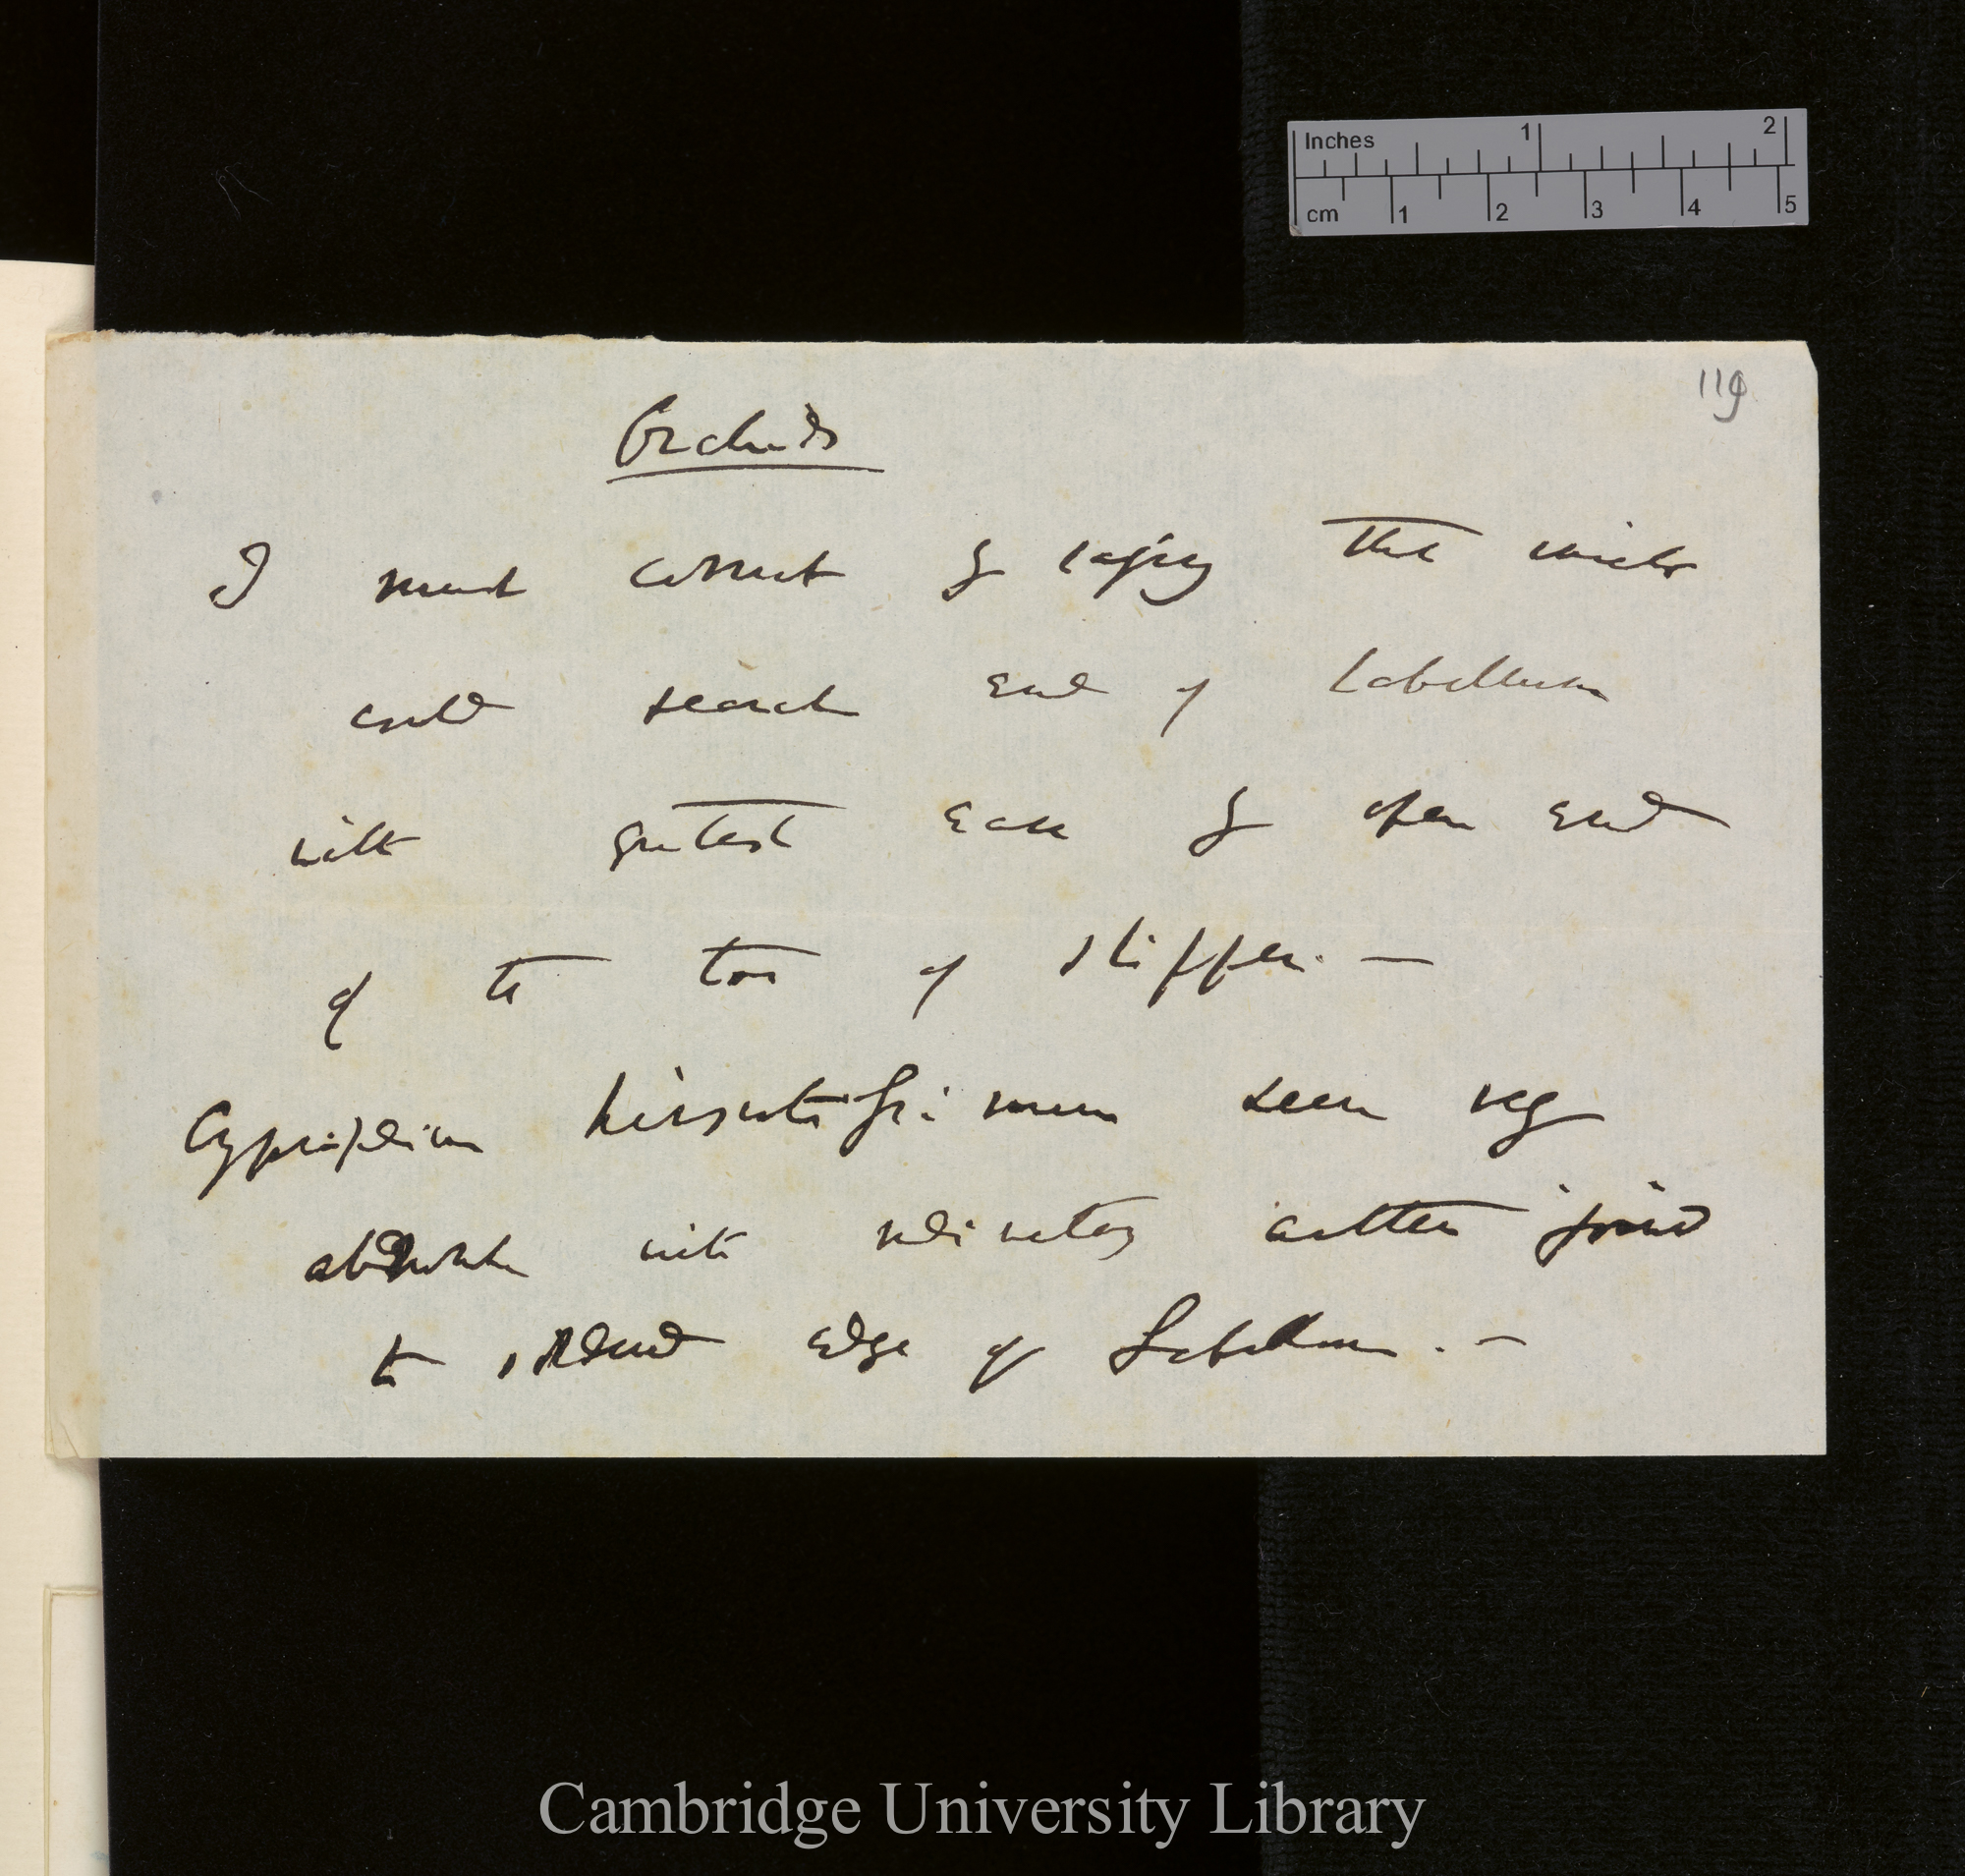 Inches 1 2
cm 1 2 3 4 5
119
Orchids
I must correct by saying that insects
could search end of Labellum
with greatest ease by open end
of the toe of slipper. —
Cypripedium hirsutissimum seem
with rudimentary anther joined
to edge of Labellum. —
Cambridge University Library